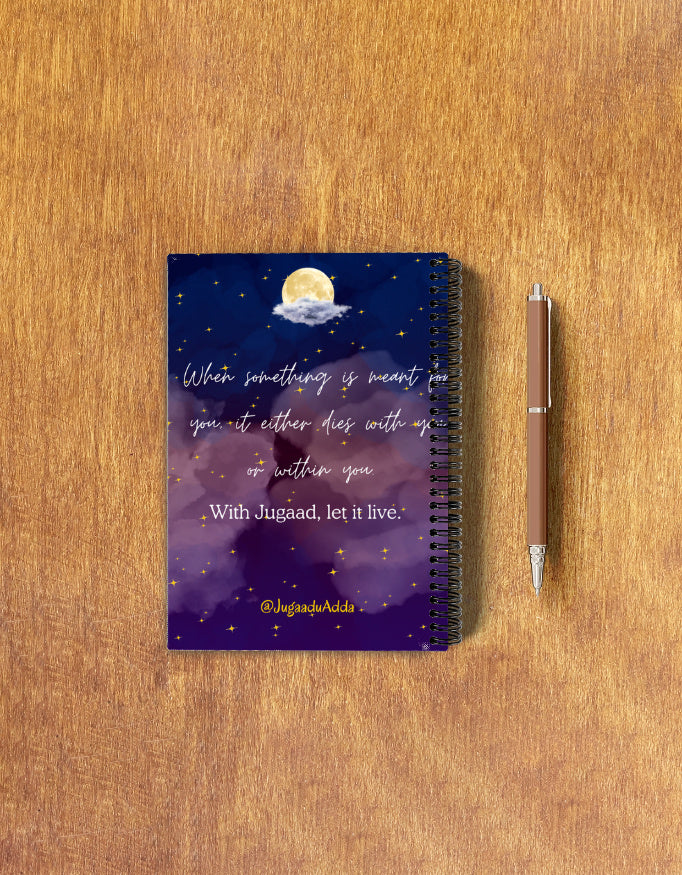 When something is meant for
you, it either dies with you
or within you.
With Jugaad, let it live.
@JugaaduAdda